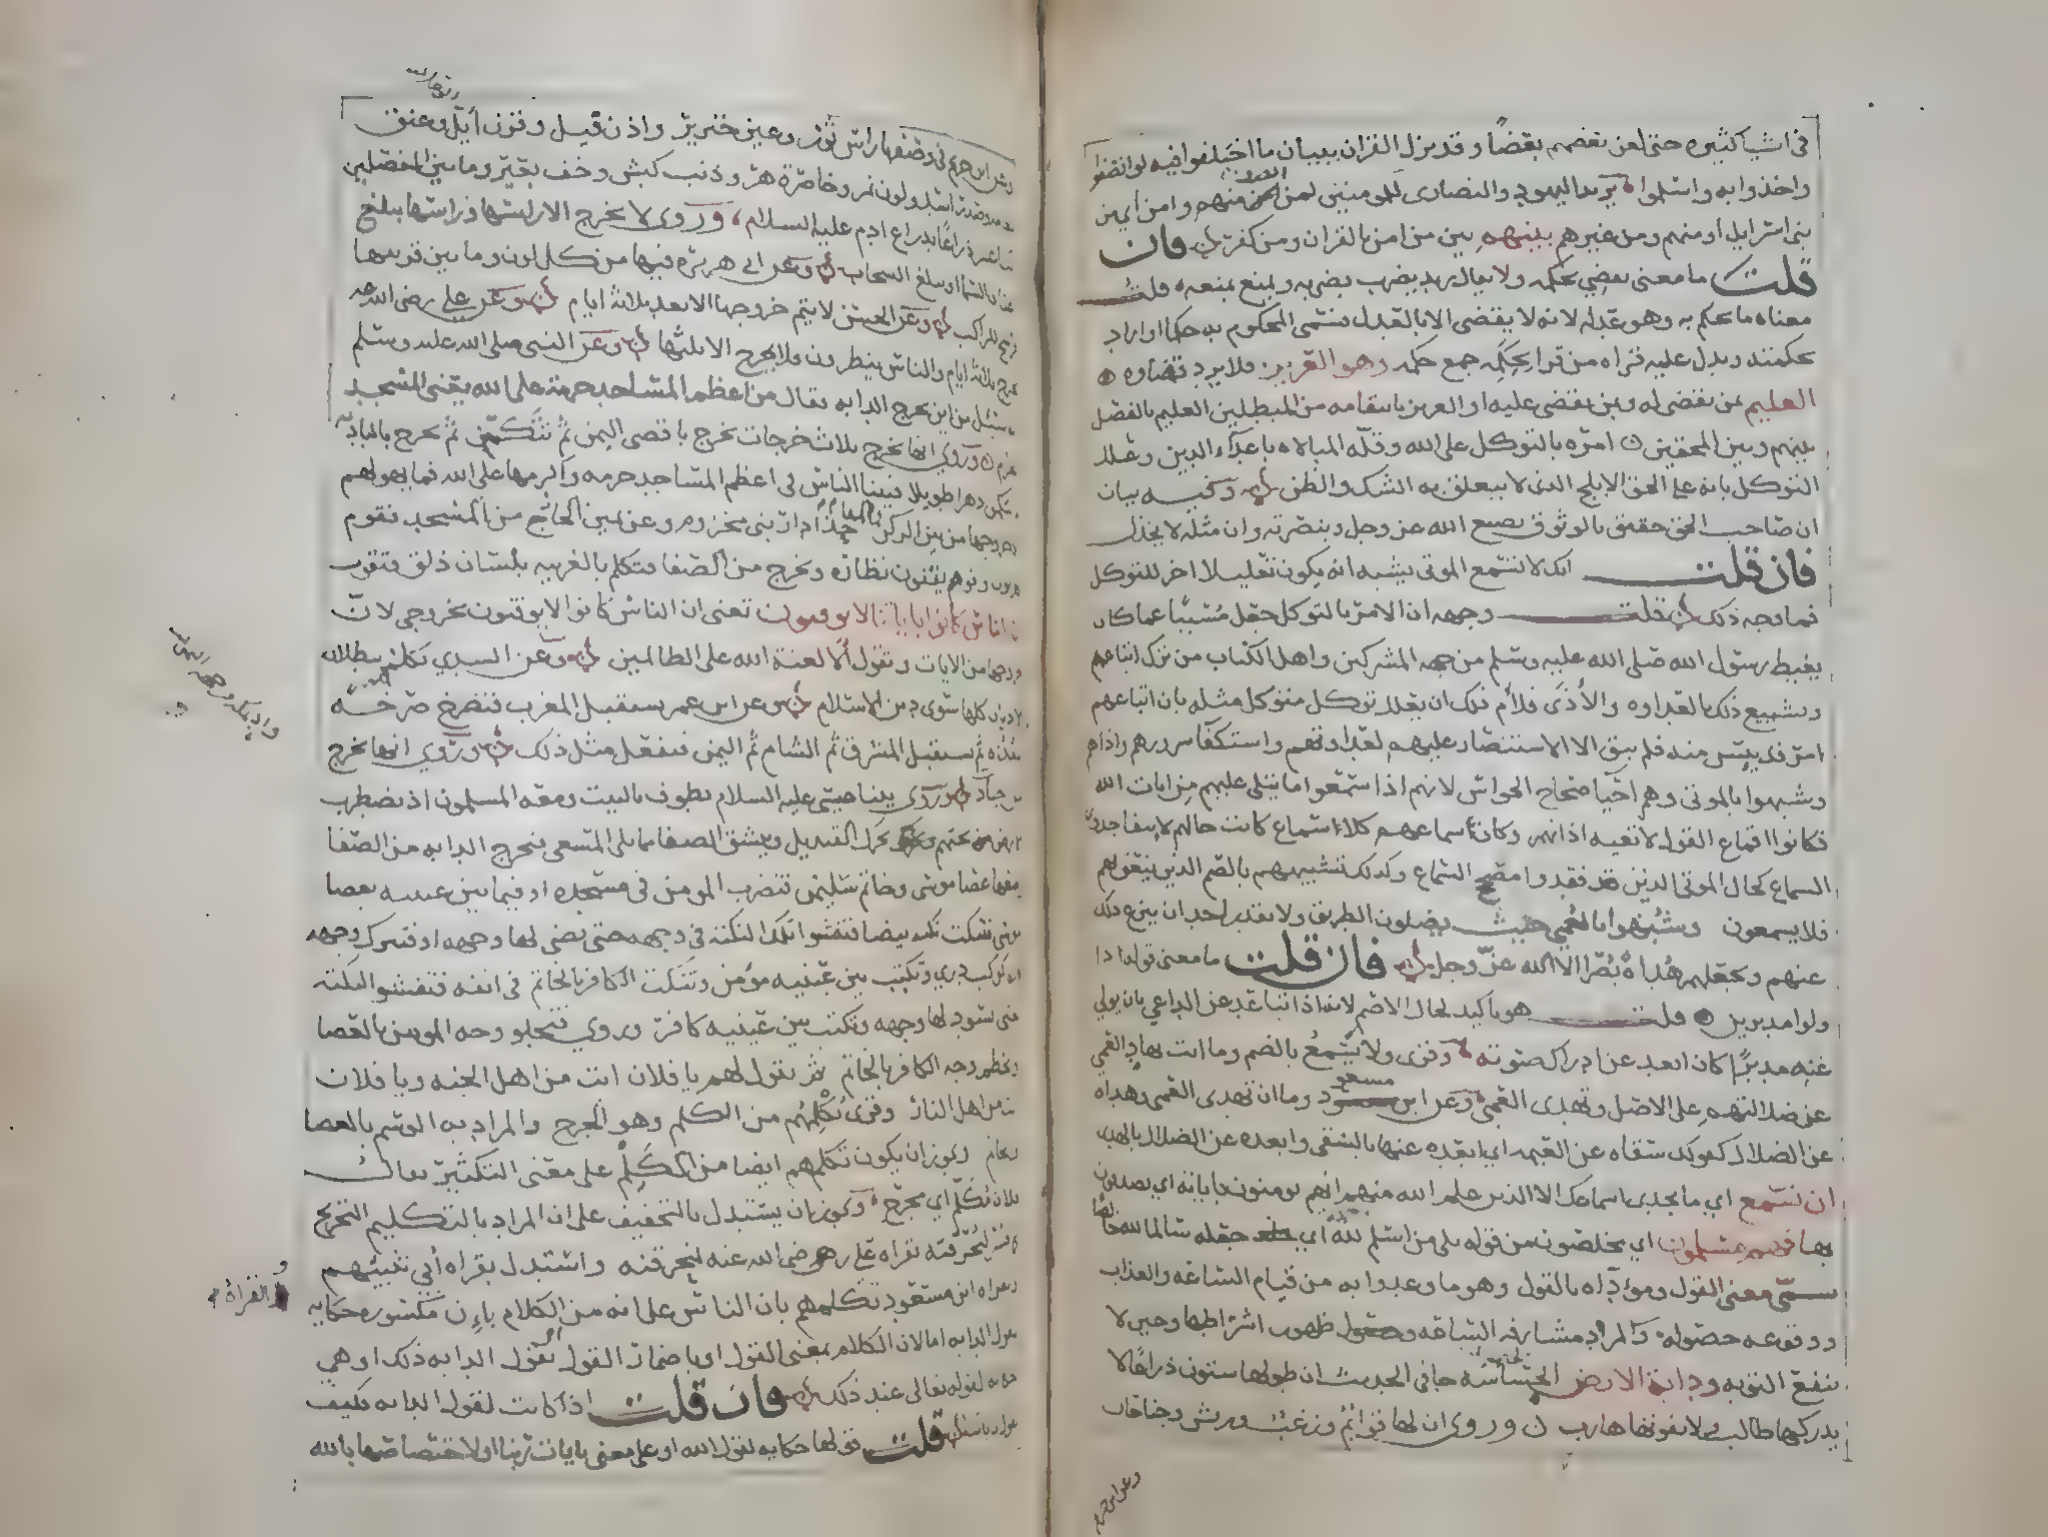 فى اشيا كثيره حتى لعن بعضهم بعضًا وقد نزل القران ببيان ما اختلفوا فيه لو انصفوا
واخذوا به واسلموا يريد اليهود والنصارى للمومنين لمن انصف منهم وامن اى من
بنى اسرايل او منهم ومن غيرهم بينهم بين من امن بالقران ومن كفر فان
قلت ما معنى يقضى بحكمه ولا يقال زيد يضرب بضربه ويمنع بمنعه قلت
معناه بما يحكم به وهو عدله لانه لا يقضى الا بالعدل فسمى المحكوم به حكما او اراد
بحكمته ويدل عليه قراه من قرا بحِكَمِه جمع حكمه وهو العزيز فلا يرد قضاوه
العليم بمن يقضى له وبمن يقضى عليه او العزيز بانتقامه من المبطلين العليم بالفصل
بينهم وبين المحقين امره بالتوكل على الله وقلّه المبالاه باعدآء الدين وعلل
التوكل بانه على الحق الابلج الذى لا يتعلق به الشك والظن وفيه بيان
ان صاحب الحق حقيق بالوثوق بصنع الله عز وجل وبنصرته وان مثله لا يخذل
فان قلت انك لا تسمع الموتى يشبه انه يكون تعليلا اخر للتوكل
فما وجه ذلك قلت وجهه ان الامر بالتوكل جعل مُسَببًا عما كان
يغيظ رسول الله صلى الله عليه وسلم من جهه المشركين واهل الكتاب من ترك اتباعهم
وتشييع ذلك بالعداوه والأذى فلأم ذلك ان يعلل توكل متوكل مثله بان اتباعهم
امر قد يئس منه فلم يبق الا الاستنصار عليهم لعداوتهم واستكفآ سرورهم واذاهم
وشبهوا بالموتى وهم احيا صحاح الحواس لانهم اذا سمعوا ما يتلى عليهم من ايات الله
فكانوا اقماع القول لا تعيه اذانهم وكان سماعهم كلا سماع كانت حالهم لانتفا جدوى
السماع كحال الموتى الذين فقدوا مصحح السماع وكذلك تشبيههم بالصم الذين ينعق بهم
فلا يسمعون وشُبّهوا بالعمى حيث يضلون الطريق ولا يقدر احد ان ينزع ذلك
عنهم ويجعلهم هُداةً بُصَرا الا الله عزّ وجل فان قلت ما معنى قوله اذا
ولوا مدبرين قلت هو تاكيد لحال الاصم لانه اذا تباعد عن الداعي بان يولي
عنه مدبرًا كان ابعد عن ادراك صوته وقرى ولا يَسْمَعُ الصم وما انت بهاد العمي
عن ضلالتهم على الاصل وتهدى العمى وعن ابن مسعود وما ان تهدى العمى وهداه
عن الضلال كقولك سقاه عن العيمه اي ابعده عنها بالسقى وابعده عن الضلال بالهدى
ان تسمع اي ما يجدى اسماعك الا الذين علم الله منهم انهم يومنون باياته اي يصدقون
بها فهم مسلمون اي مخلصون من قوله بلى من اسلم وجهه لله اي جعله سالما لله خالصا
سمّى معنى القول ومؤدّاه بالقول وهو ما وعدوا به من قيام الساعه والعذاب
ووقوعه حصوله والمراد مشارفه الساعه وظهور اشراطها وحين لا
تنفع التوبه ودابة الارض الجساسه جا فى الحديث ان طولها ستون ذراعا لا
يدركها طالب ولا يفوتها هارب وروى ان لها قوائم وزغب وريش وجناحان
وعن ابن جريج
وعن ابن جريج فى وصفها راس ثور وعين خنزير واذن فيل وقرن أيّل وعنق
نعامه وصدر اسد ولون نمر وخاصرة هر وذنب كبش وخف بعير وما بين المفصلين
اثنا عشر ذراعًا بذراع ادم عليه السلام وروى لا يخرج الا راسها وراسها يبلغ
عنان السما او يبلغ السحاب وعن ابى هريره فيها من كل لون وما بين قرنيها
فرسخ للراكب وعن الحسن لا يتم خروجها الا بعد ثلاثة ايام وعن علي رضى الله عنه
تخرج ثلاثة ايام والناس ينظرون فلا يخرج الا ثلثها وعن النبى صلى الله عليه وسلم
سئل من اين تخرج الدابه فقال من اعظم المساجد حرمة على الله يعنى المسجد
الحرام وروي انها تخرج ثلاث خرجات تخرج باقصى اليمن ثم تتكمن ثم تخرج بالباديه
ثم تتكمن دهرا طويلا فبينا الناس فى اعظم المساجد حرمه واكرمها على الله فما يهولهم
الا خروجها من بين الركن حذاء دار بنى مخزوم وعن يمين الخارج من المسجد فقوم
يهربون وقوم يقفون نظاره وتخرج من الصفا فتكلم بالعربيه بلسان ذلق فتقول
ان الناس كانوا باياتنا لا يوقنون تعنى ان الناس كانوا لا يوقنون بخروجي لانّ
خروجها من الايات وتقول ألا لعنة الله على الظالمين وعن السدي تكلمهم ببطلان
الاديان كلها سوى دين الاسلام وعن ابن عمر تستقبل المغرب فتصرخ صرخه
تنفذه ثم تستقبل المشرق ثم الشام ثم اليمن فتفعل مثل ذلك وروي انها تخرج
من جياد وروى بينا عيسى عليه السلام يطوف بالبيت ومعه المسلمون اذ تضطرب
الارض تحتهم تحرك القنديل وينشق الصفا مما يلى المسعى فتخرج الدابه من الصفا
ومعها عصا موسى وخاتم سليمن فتضرب المومن فى مسجده او فيما بين عينيه بعصا
موسى فتنكت نكته بيضا فتفشوا تلك النكتة فى وجهه حتى يضى لها وجهه او فتترك وجهه
كانه كوكب دري وتكتب بين عينيه مؤمن وتنكت الكافر بالخاتم فى انفه فتفشوا النكته
حتى يسود لها وجهه وتكتب بين عينيه كافر وروي فتجلو وجه المومن بالعصا
وتخطم وجه الكافر بالخاتم ثم تقول لهم يا فلان انت من اهل الجنه ويا فلان
انت من اهل النار وقرى تَكْلِمُهُم من الكلم وهو الجرح والمراد به الوسم بالعصا
والخاتم ويجوز ان يكون تكلمهم ايضا من الكَلْم على معنى التكثير يقال
فلان مُكَلَّم اي مجرّح ويجوز ان يستدل بالتخفيف على ان المراد بالتكليم التجريح
كما فسر لنُحَرّقنه بقراه على رضى الله عنه لنحرقنه واستدل بقراه أُبى تنبئهم
وبقراه ابن مسعود تكلمهم بان الناس على انه من الكلام والقراة باءن مكسوره حكايه
لقول الدابه اما لان الكلام بمعنى القول او باضمار القول اى تقول الدابه ذلك او هي
حكايه لقوله تعالى عند ذلك فان قلت اذا كانت لقول الدابه فكيف
تقول باياتنا قلت قولها حكايه لقول الله او على معنى بايات ربنا او لاختصاصها بالله